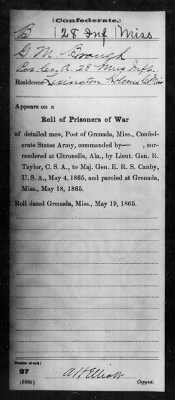 (Confederate.)
B 28 Inf Miss
G. M. Brough
Co. A. 28 Miss Infy
Residence Lexington Holmes Co Miss
Appears on a
Roll of Prisoners of War
of detailed men, Post of Grenada, Miss., Confed-
erate States Army, commanded by—— , sur-
rendered at Citronelle, Ala., by Lieut. Gen. R.
Taylor, C. S. A., to Maj. Gen. E. R. S. Canby,
U. S. A., May 4, 1865, and paroled at Grenada,
Miss., May 18, 1865.
Roll dated Grenada, Miss., May 19, 1865.
Number of roll:
27
A H Elliott
Copyist.